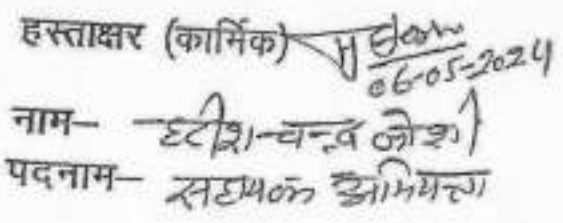 हस्ताक्षर (कार्मिक)
06-05-2024
नाम– हरीश चन्द्र जोशी
पदनाम– सहायक अभियन्ता